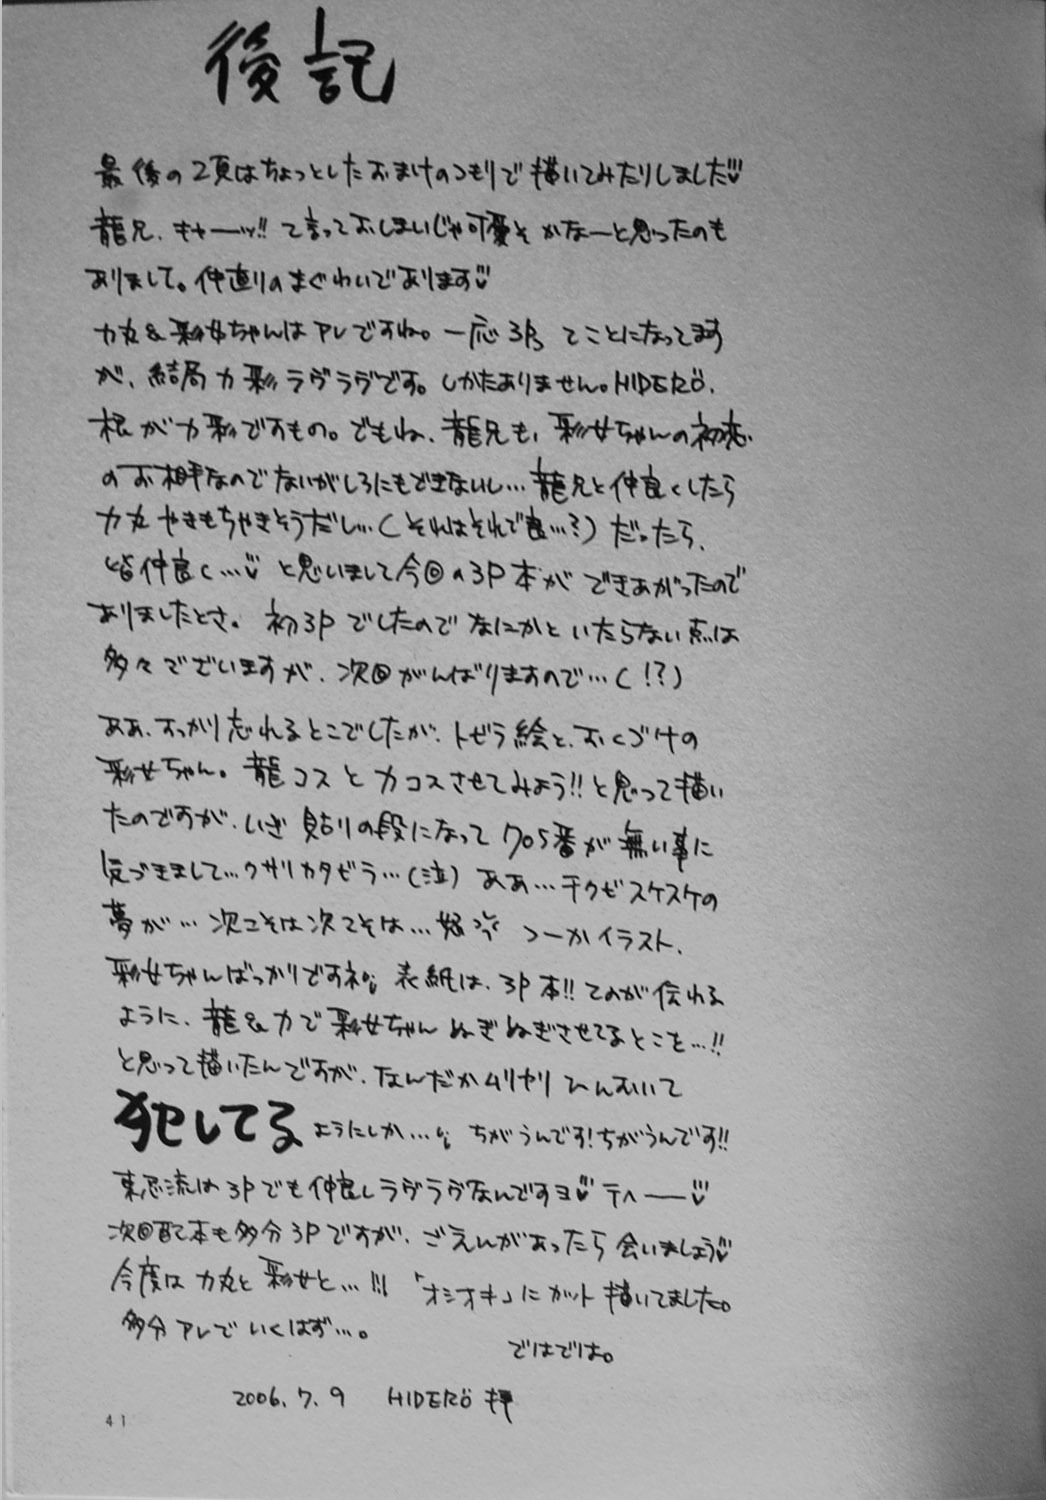 後記
最後の2頁はちょっとしたおまけのつもりで描いてみたりしました
龍兄、キャーーッ!! て言っておしまいじゃ可愛そかなーと思ったのも
ありまして。仲直りのまぐわいであります
力丸&彩女ちゃんはアレですね。一応3P、てことになってます
が、結局力彩ラヴラヴです。しかたありません。HIDERÖ、
根が力彩ですもの。でもね、龍兄も、彩女ちゃんの初恋
のお相手なのでないがしろにもできないし…龍兄と仲良くしたら
力丸やきもちやきそうだし…(それはそれで良…?)だったら、
皆仲良く…と思いまして今回の3P本ができあがったので
ありましたとさ。初3Pでしたのでなにかといたらない点は
多々ございますが、次回がんばりますので…(!?)
ああ、すっかり忘れるとこでしたが、トビラ絵と、おくづけの
彩女ちゃん。龍コスと力コスさせてみよう!!と思って描い
たのですが、いざ貼りの段になって705番が無い事に
気づきまして…ウザリカタビラ…(泣)ああ…チクビスケスケの
夢が…次こそは次こそは…怒 つーかイラスト、
彩女ちゃんばっかりですネ。表紙は、3P本!!てのが伝わる
ように、龍&力で彩女ちゃんぬぎぬぎさせてるとこを…!!
と思って描いたんですが、なんだかムリヤリひんむいて
犯してる ようにしか…。ちがうんです!ちがうんです!!
東忍流は3Pでも仲良しラヴラヴなんですヨ テヘーー
次回配本も多分3Pですが、ごえんがあったら会いましょう
今度は力丸と彩女と…!!!「オシオキ」にカット描いてました。
多分アレでいくはず…。
ではでは。
2006.7.9 HIDERÖ 拝
41